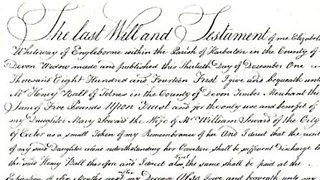 The last Will and Testament of me Elizabeth
Whiteway of Engleborne within the Parish of Harberton in the County of
Devon Widow made and published this thirtieth Day of December One
Thousand Eight Hundred and Fourteen First I give and bequeath unto
Mr Henry Ball of Totnes in the County of Devon Timber Merchant the
Sum of Five Pounds Upon Trust and for the only use and benefit of
my Daughter Mary Soward the Wife of Mr William Soward of the City
of Exeter as a small Token of my Remembrance of her And I trust that the
of my said Daughter alone notwithstanding her Coverture shall be sufficient Discharge to
the said Henry Ball therefor and I direct the same shall be paid at the
Expiration of Six Months my Decease Also I give and bequeath unto my